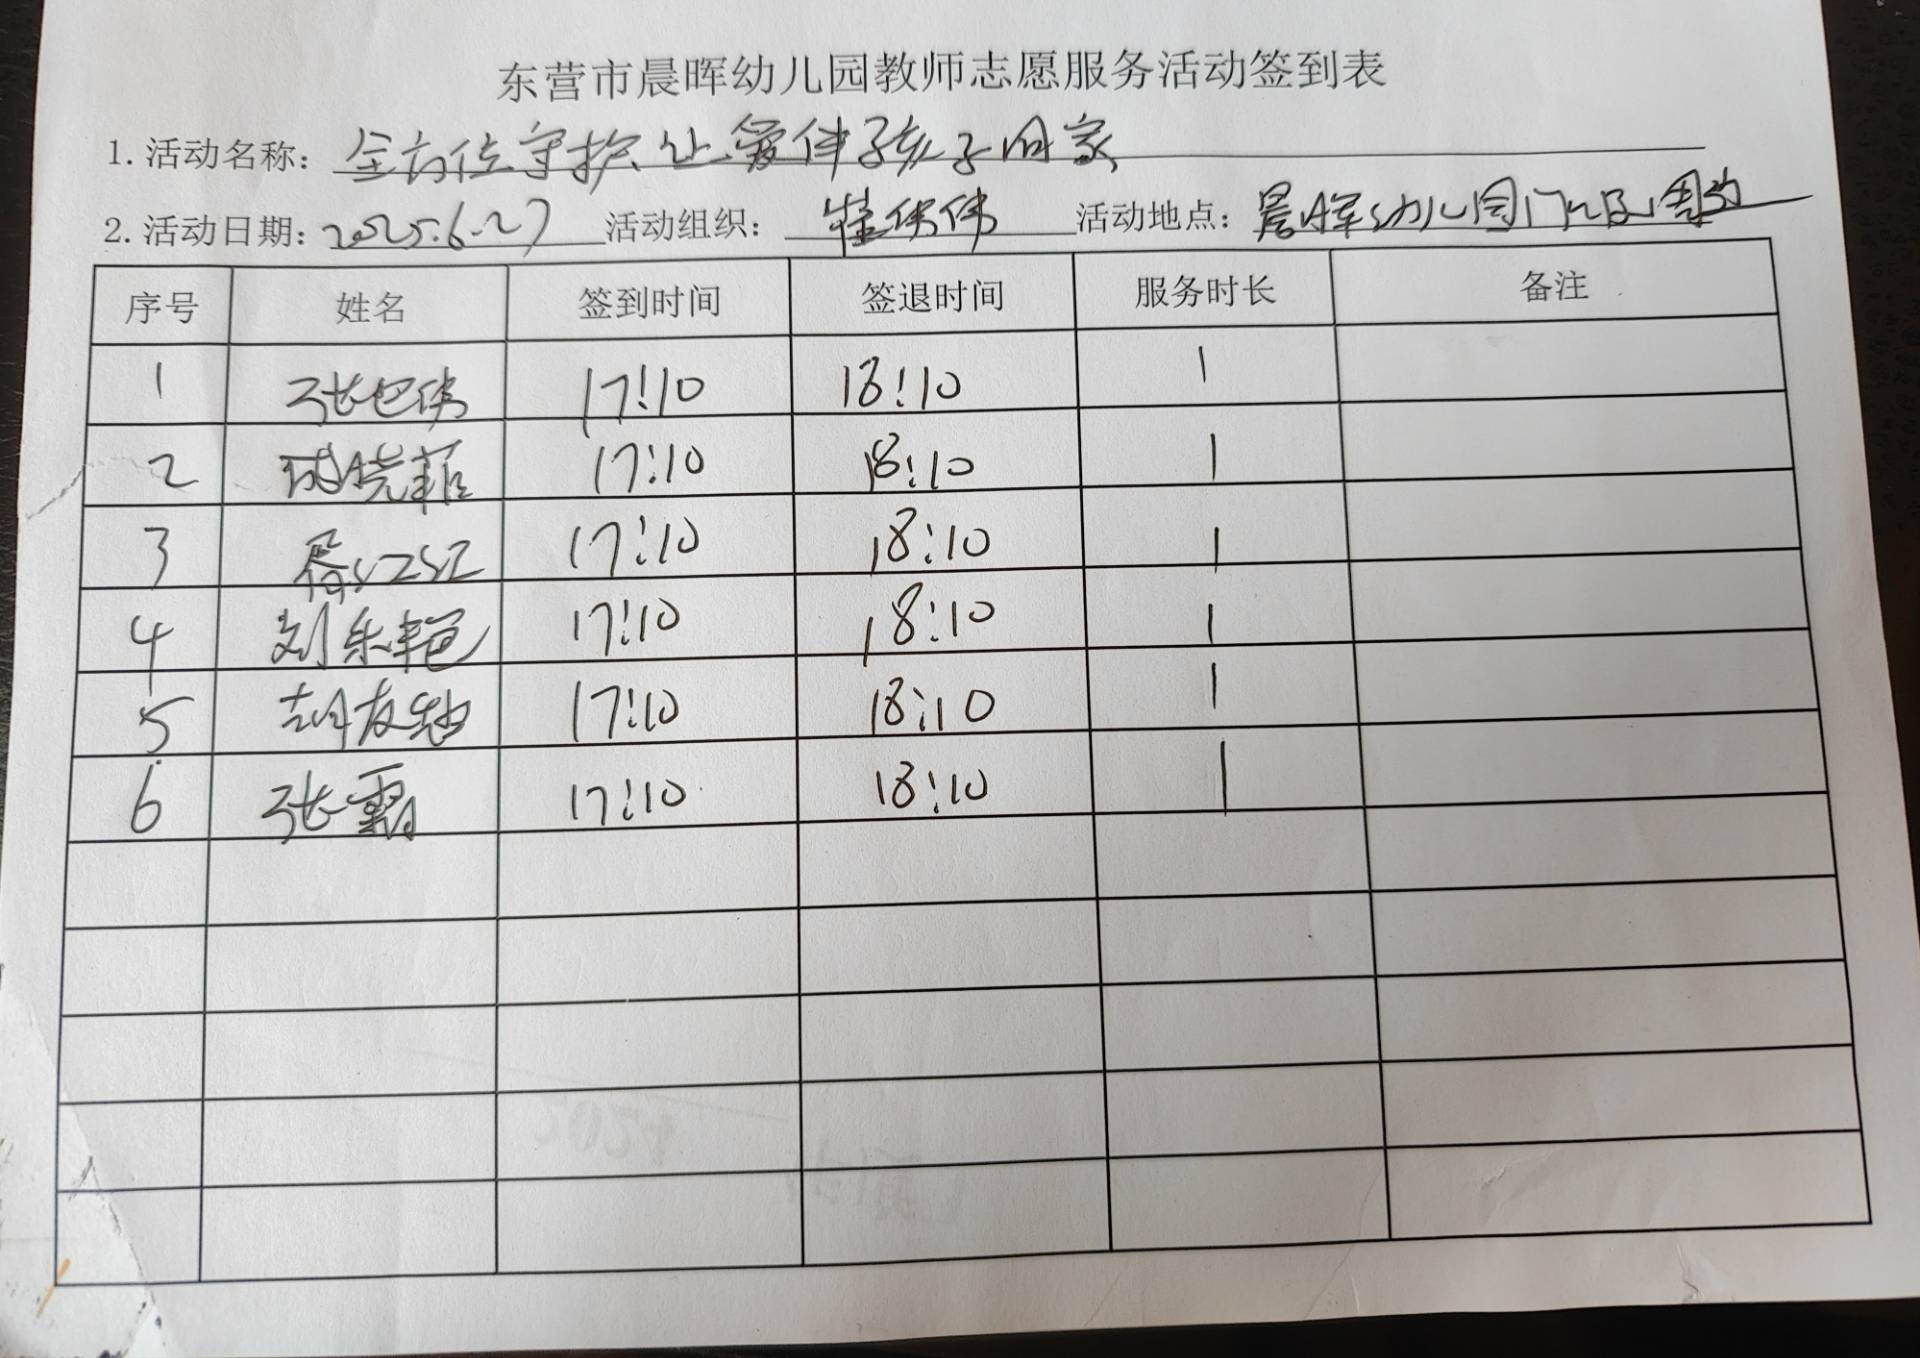 东营市晨晖幼儿园教师志愿服务活动签到表
1.活动名称: 全方位守护 让爱伴孩子回家
2.活动日期: 2025.6.27 活动组织: 崔伟伟 活动地点: 晨晖幼儿园门口及周边
序号 姓名 签到时间 签退时间 服务时长 备注
1 张 伟 17:10 18:10 1
2 晓菲 17:10 18:10 1
3 红红 17:10 18:10 1
4 刘东艳 17:10 18:10 1
5 胡友 17:10 18:10 1
6 张霜 17:10 18:10 1